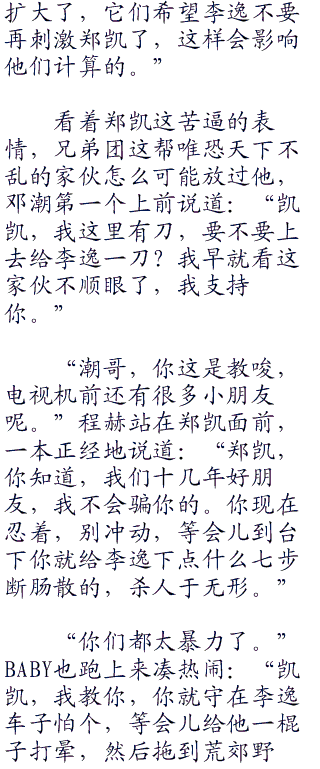 扩大了，它们希望李逸不要
再刺激郑凯了，这样会影响
他们计算的。”
看着郑凯这苦逼的表
情，兄弟团这帮唯恐天下不
乱的家伙怎么可能放过他，
邓潮第一个上前说道：“凯
凯，我这里有刀，要不要上
去给李逸一刀？我早就看这
家伙不顺眼了，我支持
你。”
“潮哥，你这是教唆，
电视机前还有很多小朋友
呢。”程赫站在郑凯面前，
一本正经地说道：“郑凯，
你知道，我们十几年好朋
友，我不会骗你的。你现在
忍着，别冲动，等会儿到台
下你就给李逸下点什么七步
断肠散的，杀人于无形。”
“你们都太暴力了。”
BABY也跑上来凑热闹：“凯
凯，我教你，你就守在李逸
车子怕个，等会儿给他一棍
子打晕，然后拖到荒郊野